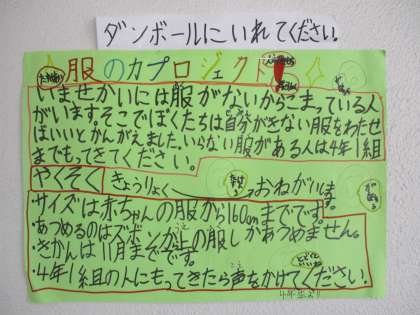 ダンボールにいれてください。
服のカプロジェクト
いませかいには服がないからこまっている人
がいます。そこでぼくたちは自分がきない服をわたせ
ばいいとかんがえました。いらない服がある人は4年1組
までもってきてください。
やくそく きょうりょく おねがいします。
・サイズは赤ちゃんの服から160cmまでです。
・あつめるのはズボンか上の服しかあつめません。
・きかんは11月まです。
・4年1組の人にもってきたら声をかけてください。